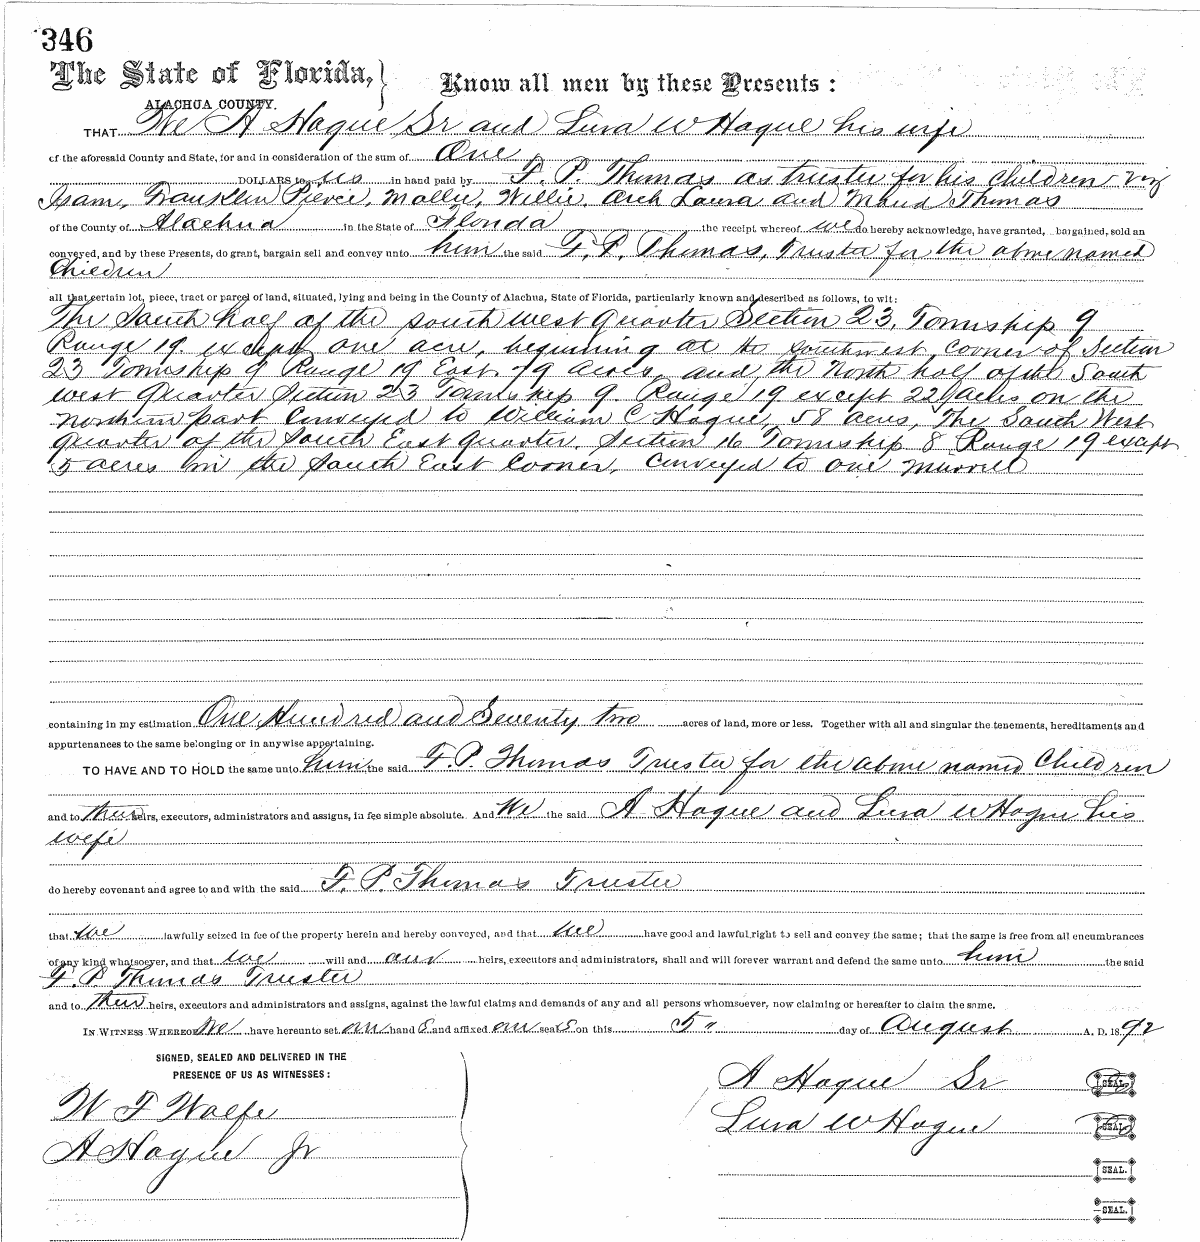 346
The State of Florida, } Know all men by these Presents :
ALACHUA COUNTY.
THAT We A Hague Sr and Lura W Hague his wife
of the aforesaid County and State, for and in consideration of the sum of One
DOLLARS to us in hand paid by F. P. Thomas as trustee for his children viz
Isam, Franklin Pierce, Mollie, Willie, Arch Laura and Maud Thomas
of the County of Alachua in the State of Florida the receipt whereof we do hereby acknowledge, have granted, bargained, sold an
conveyed, and by these Presents, do grant, bargain sell and convey unto him the said F. P. Thomas, Trustee for the above named
Children
all that certain lot, piece, tract or parcel of land, situated, lying and being in the County of Alachua, State of Florida, particularly known and described as follows, to wit:
The South half of the south west Quarter Section 23, Township 9
Range 19. except one acre, beginning at the southwest corner of Section
23 Township 9 Range 19 East 79 acres, and the North half of the South
west Quarter Section 23 Township 9. Range 19 except 22 acres on the
Northern part Conveyed to William C Hague, 58 acres, The South West
Quarter of the South East Quarter, Section 16 Township 8 Range 19 except
5 acres in the South East Corner, Conveyed to one Murrell
containing in my estimation One Hundred and Seventy two acres of land, more or less. Together with all and singular the tenements, hereditaments and
appurtenances to the same belonging or in anywise appertaining.
TO HAVE AND TO HOLD the same unto him the said F. P. Thomas Trustee for the above named Children
and to their heirs, executors, administrators and assigns, in fee simple absolute. And We the said A Hague and Lura W Hague his
wife
do hereby covenant and agree to and with the said F. P. Thomas Trustee
that we lawfully seized in fee of the property herein and hereby conveyed, and that we have good and lawful right to sell and convey the same; that the same is free from all encumbrances
of any kind whatsoever, and that we will and our heirs, executors and administrators, shall and will forever warrant and defend the same unto him the said
F. P. Thomas Trustee
and to their heirs, executors and administrators and assigns, against the lawful claims and demands of any and all persons whomsoever, now claiming or hereafter to claim the same.
IN WITNESS WHEREOF We have hereunto set our hand S and affixed our seal S on this 5" day of August A. D. 1892
SIGNED, SEALED AND DELIVERED IN THE
PRESENCE OF US AS WITNESSES :
W F Wolfe
A Hague Jr
A Hague Sr SEAL.
Lura W Hague SEAL.
SEAL.
SEAL.